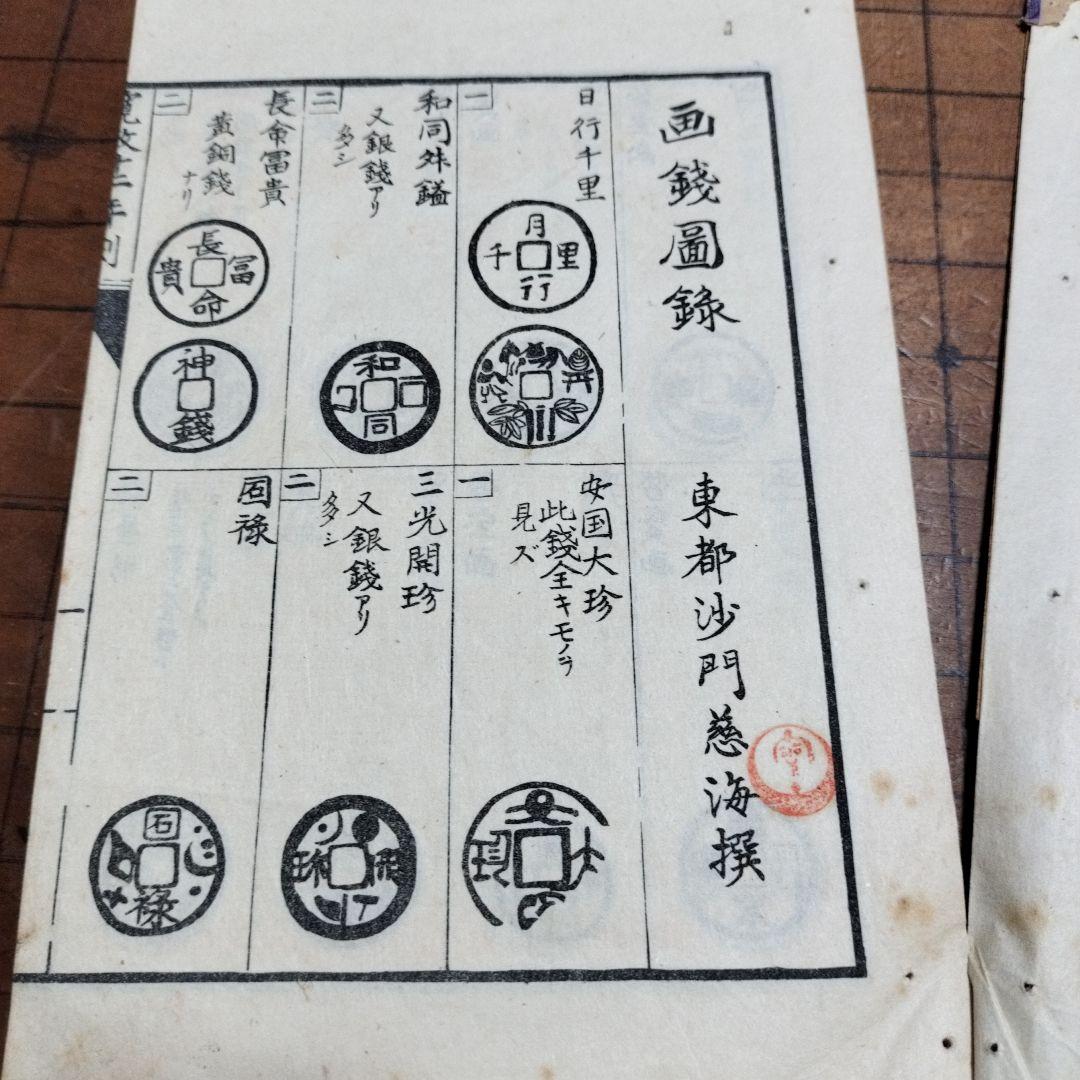 画錢圖錄
東都沙門慈海撰
一
日行千里
月行千里
二
和同外鎰
又銀錢アリ
多シ
和同
二
長命冨貴
黄銅錢
ナリ
長命冨貴
神錢
一
安国大珍
此錢全キモノヲ
見ズ
二
三光開珍
又銀錢アリ
多シ
二
禄
石禄
寛政十二年
一